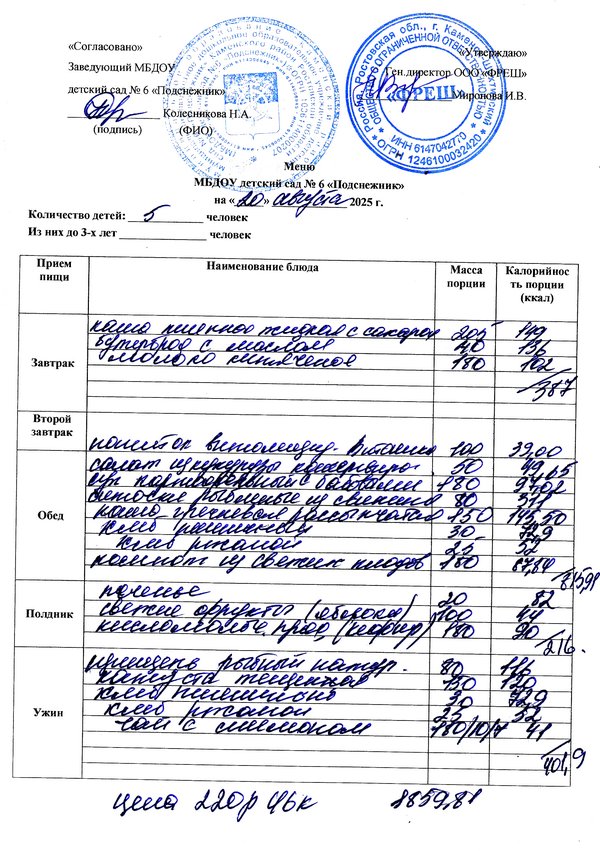 «Согласовано»
«Утверждаю»
Заведующий МБДОУ
Ген.директор ООО «ФРЕШ»
детский сад № 6 «Подснежник»
Миронова И.В.
Колесникова Н.А.
(подпись) (ФИО)
Россия, Ростовская обл., г. Каменск-Шахтинский
ОБЩЕСТВО С ОГРАНИЧЕННОЙ ОТВЕТСТВЕННОСТЬЮ
«ФРЕШ»
ИНН 6147042770
ОГРН 1246100032420
Меню
МБДОУ детский сад № 6 «Подснежник»
на «20» августа 2025 г.
Количество детей: 5 человек
Из них до 3-х лет человек
Прием пищи Наименование блюда Масса порции Калорийность порции (ккал)
Завтрак
каша пшенная жидкая с сахаром 205 149
бутерброд с маслом 40 136
молоко кипяченое 180 102
387
Второй завтрак
напиток витаминиз. Виташка 100 39,00
Обед
салат из кукурузы консервиро. 50 49
суп картофельный с бобовыми 180
из свинины 80
каша гречневая рассыпчатая 150
хлеб пшеничный 30
хлеб ржаной 25 52
компот из свежих плодов 180 67,84
Полдник
печенье 20 82
свежие фрукты (яблоко) 100 44
кисломолоч. прод. (кефир) 180 90
216.
Ужин
рыбный натур. 80
капуста тушеная 150
хлеб пшеничный 30
хлеб ржаной 25 52
чай с лимоном 180/10/7 41
401,9
цена 220р 46к 1859,81